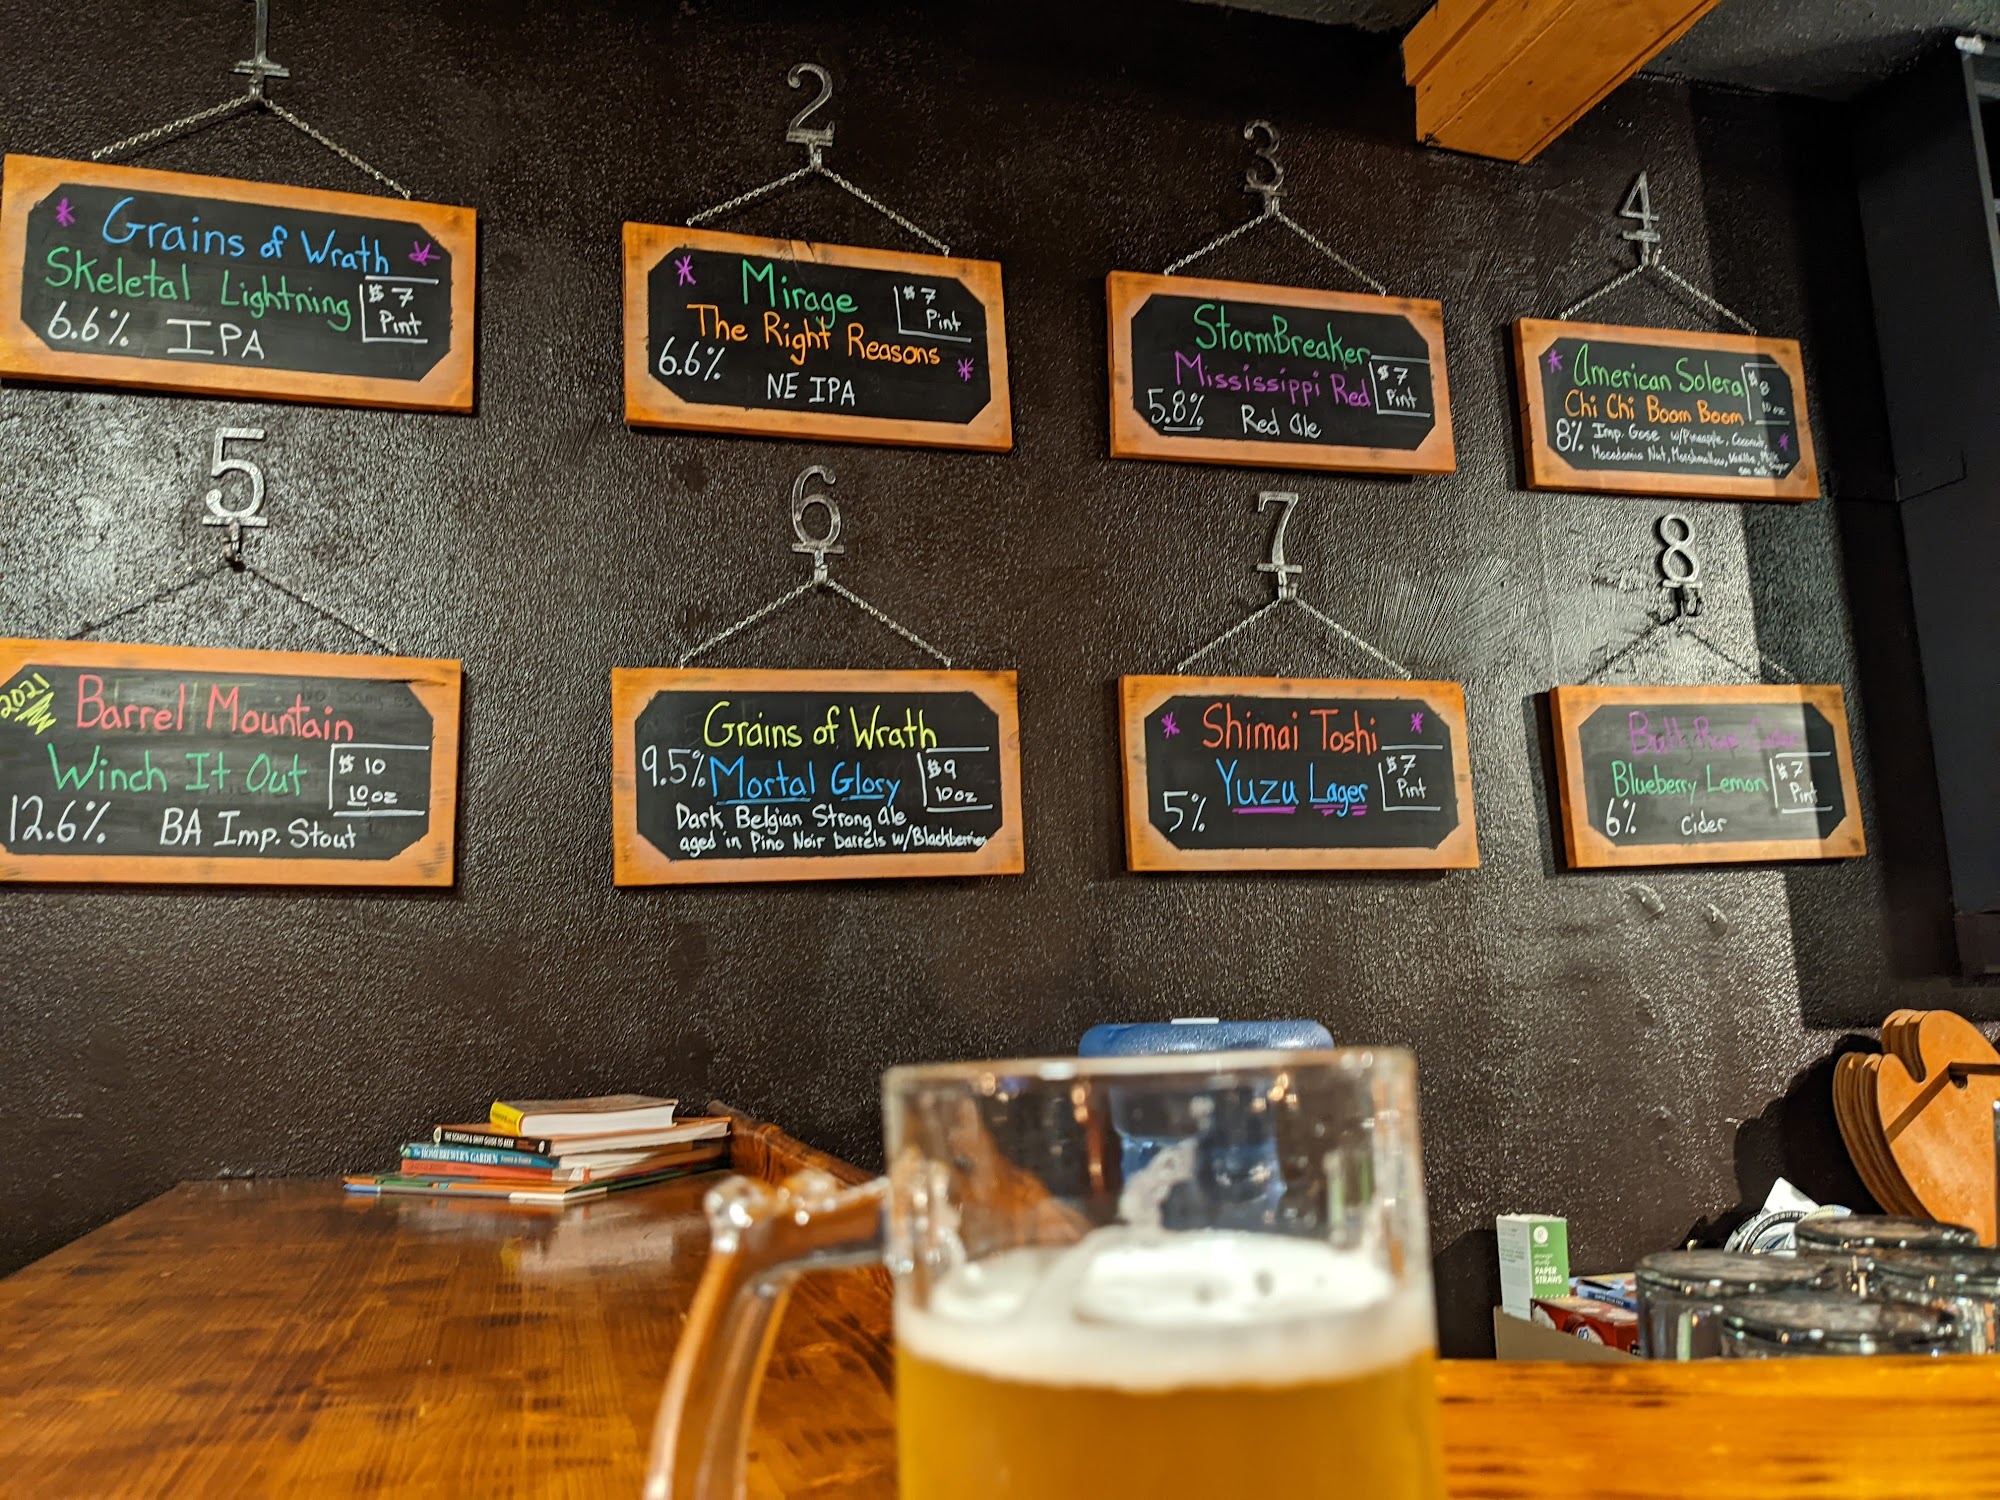 1
Grains of Wrath
Skeletal Lightning
$7
Pint
6.6% IPA
2
Mirage
$7
Pint
The Right Reasons
6.6%
NE IPA
3
StormBreaker
Mississippi Red
$7
Pint
5.8%
Red Ale
4
American Solera
$8
10oz
Chi Chi Boom Boom
8% Imp. Gose w/Pineapple, Coconut,
Macadamia Nut, Marshmallow, Vanilla, Milk
sea salt
5
2021
Barrel Mountain
Winch It Out
$10
10oz
12.6% BA Imp. Stout
6
Grains of Wrath
9.5% Mortal Glory
$9
10oz
Dark Belgian Strong Ale
aged in Pino Noir barrels w/Blackberries
7
Shimai Toshi
Yuzu Lager
$7
Pint
5%
8
Bull Run Cider
Blueberry Lemon
$7
Pint
6%
Cider
THE SCRATCH & SNIFF GUIDE TO BEER
The HOMEBREWER'S GARDEN
PAPER
STRAWS